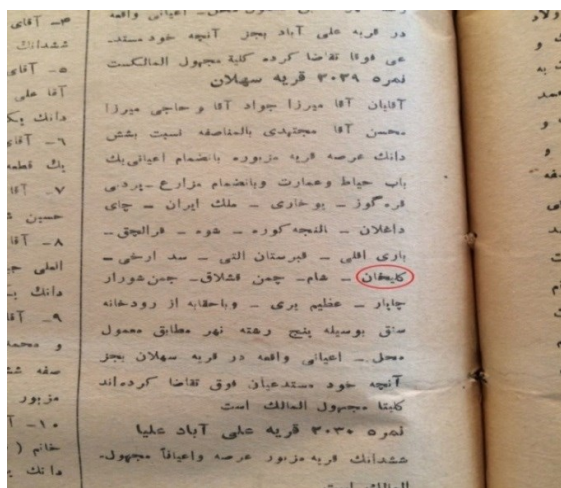 در قریه علی آباد بجز آنچه خود مستد‌
عی فوقا تقاضا کرده کلیة مجهول المالکست
نمره ۳۰۲۹ قریه سهلان
آقایان آقا میرزا جواد آقا و حاجی میرزا
محسن آقا مجتهدی بالمناصفه نسبت بشش
دانك عرصه قریه مزبوره بانضمام اعیانی یك
باب حیاط وعمارت وبانضمام مزارع ـ یردبی
قره گوز ـ بوخاری ـ ملك ایران ـ چای
داغلان ـ النجه کوره ـ شوه ـ قرالچق ـ
باری اقلی ـ قبرستان التی ـ سد ارخی ـ
کلیخان ـ شام ـ چمن قشلاق ـ چمن شورار
چاپار ـ عظیم یری ـ وباحقابه از رودخانه
سنق بوسیله پنج رشته نهر مطابق معمول
محل ـ اعیانی واقعه در قریه سهلان بجز
آنچه خود مستدعیان فوق تقاضا کرده‌اند
کلیتا مجهول المالك است
نمره ۳۰۳۰ قریه علی آباد علیا
ششدانك قریه مزبور عرصه واعیاناً مجهول‌
المالك است
۴ـ آقای
ششدانك
۵ـ آقای
آقا علی
دانك یك
۶ـ آقای
یك قطعه
۷ـ آقا
حسین
۸ـ آقا
العلی
دانك
۹ـ
و محمد
صفه
مزبور
۱۰ـ
خانم
دانك